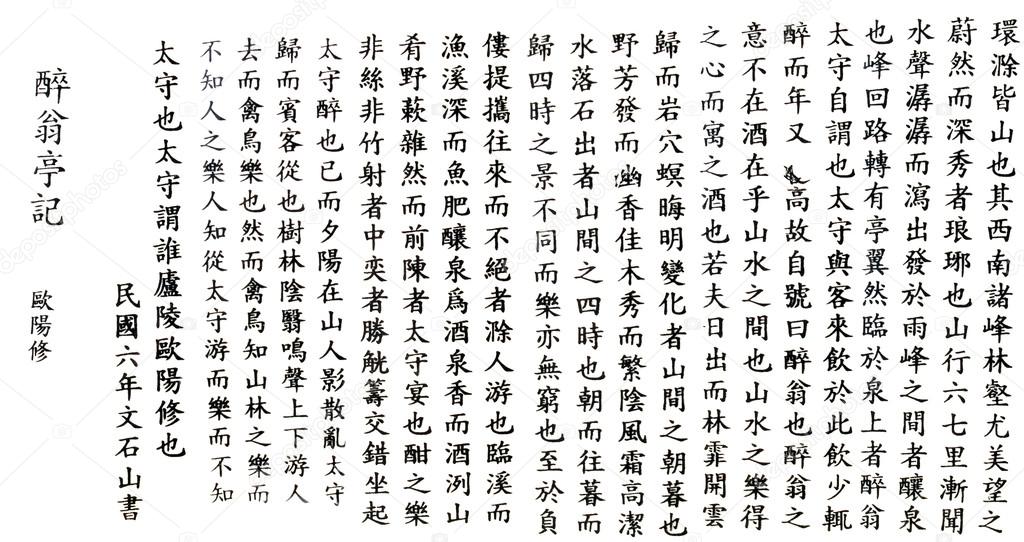 環滁皆山也其西南諸峰林壑尤美望之
蔚然而深秀者琅琊也山行六七里漸聞
水聲潺潺而瀉出發於雨峰之間者釀泉
也峰回路轉有亭翼然臨於泉上者醉翁
太守自謂也太守與客來飲於此飲少輒
醉而年又高故自號曰醉翁也醉翁之
意不在酒在乎山水之間也山水之樂得
之心而寓之酒也若夫日出而林霏開雲
歸而岩穴螟晦明變化者山間之朝暮也
野芳發而幽香佳木秀而繁陰風霜高潔
水落石出者山間之四時也朝而往暮而
歸四時之景不同而樂亦無窮也至於負
僂提攜往來而不絕者滁人游也臨溪而
漁溪深而魚肥釀泉爲酒泉香而酒洌山
肴野蔌雜然而前陳者太守宴也酣之樂
非絲非竹射者中奕者勝觥籌交錯坐起
太守醉也已而夕陽在山人影散亂太守
歸而賓客從也樹林陰翳鳴聲上下游人
去而禽鳥樂也然而禽鳥知山林之樂而
不知人之樂人知從太守游而樂而不知
太守也太守謂誰廬陵歐陽修也
民國六年文石山書
醉翁亭記 歐陽修
depositphotos